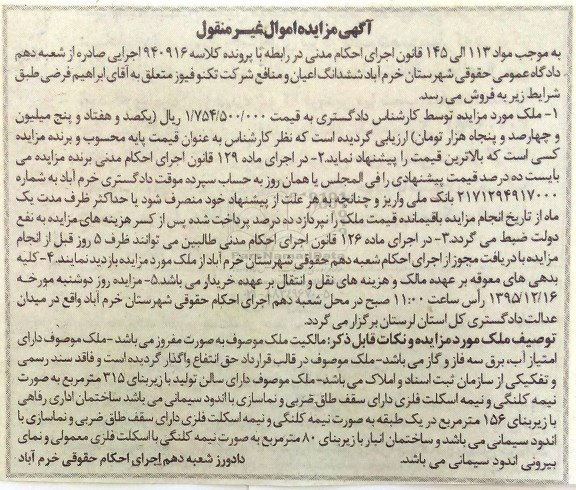 آگهی مزایده اموال غیر منقول
به موجب مواد ۱۱۳ الی ۱۴۵ قانون اجرای احکام مدنی در رابطه با پرونده کلاسه ۹۴۰۹۱۶ اجرایی صادره از شعبه دهم
دادگاه عمومی حقوقی شهرستان خرم آباد ششدانگ اعیان و منافع شرکت تکنو فیوز متعلق به آقای ابراهیم فرضی طبق
شرایط زیر به فروش می رسد.
۱- ملک مورد مزایده توسط کارشناس دادگستری به قیمت ۱/۷۵۴/۵۰۰/۰۰۰ ریال (یکصد و هفتاد و پنج میلیون
و چهارصد و پنجاه هزار تومان) ارزیابی گردیده است که نظر کارشناس به عنوان قیمت پایه محسوب و برنده مزایده
کسی است که بالاترین قیمت را پیشنهاد نماید.۲- در اجرای ماده ۱۲۹ قانون اجرای احکام مدنی برنده مزایده می
بایست ده درصد قیمت پیشنهادی را فی المجلس یا همان روز به حساب سپرده موقت دادگستری خرم آباد به شماره
۲۱۷۱۲۹۴۹۱۷۰۰۰ بانک ملی واریز و چنانچه به هر علت از پیشنهاد خود منصرف شود یا حداکثر ظرف مدت یک
ماه از تاریخ انجام مزایده باقیمانده قیمت ملک را نپردازد ده درصد پرداخت شده پس از کسر هزینه های مزایده به نفع
دولت ضبط می گردد.۳- در اجرای ماده ۱۲۶ قانون اجرای احکام مدنی طالبین می توانند ظرف ۵ روز قبل از انجام
مزایده با دریافت مجوز از اجرای احکام شعبه دهم حقوقی شهرستان خرم آباد از ملک مورد مزایده بازدید نمایند.۴- کلیه
بدهی های معوقه بر عهده مالک و هزینه های نقل و انتقال بر عهده خریدار می باشد.۵- مزایده روز دوشنبه مورخه
۱۳۹۵/۱۲/۱۶ رأس ساعت ۱۱:۰۰ صبح در محل شعبه دهم اجرای احکام حقوقی شهرستان خرم آباد واقع در میدان
عدالت دادگستری کل استان لرستان برگزار می گردد.
توصیف ملک مورد مزایده و نکات قابل ذکر: مالکیت ملک موصوف به صورت مفروز می باشد -ملک موصوف دارای
امتیاز آب، برق سه فاز و گاز می باشد -ملک موصوف در قالب قرارداد حق انتفاع واگذار گردیده است و فاقد سند رسمی
و تفکیکی از سازمان ثبت اسناد و املاک می باشد-ملک موصوف دارای سالن تولید با زیربنای ۳۱۵ مترمربع به صورت
نیمه کلنگی و نیمه اسکلت فلزی دارای سقف طاق ضربی و نماسازی با اندود سیمانی می باشد ساختمان اداری رفاهی
با زیربنای ۱۵۶ مترمربع در یک طبقه به صورت نیمه کلنگی و نیمه اسکلت فلزی دارای سقف طاق ضربی و نماسازی با
اندود سیمانی می باشد و ساختمان انبار با زیربنای ۸۰ مترمربع به صورت نیمه کلنگی با اسکلت فلزی معمولی و نمای
بیرونی اندود سیمانی می باشد. دادورز شعبه دهم اجرای احکام حقوقی خرم آباد